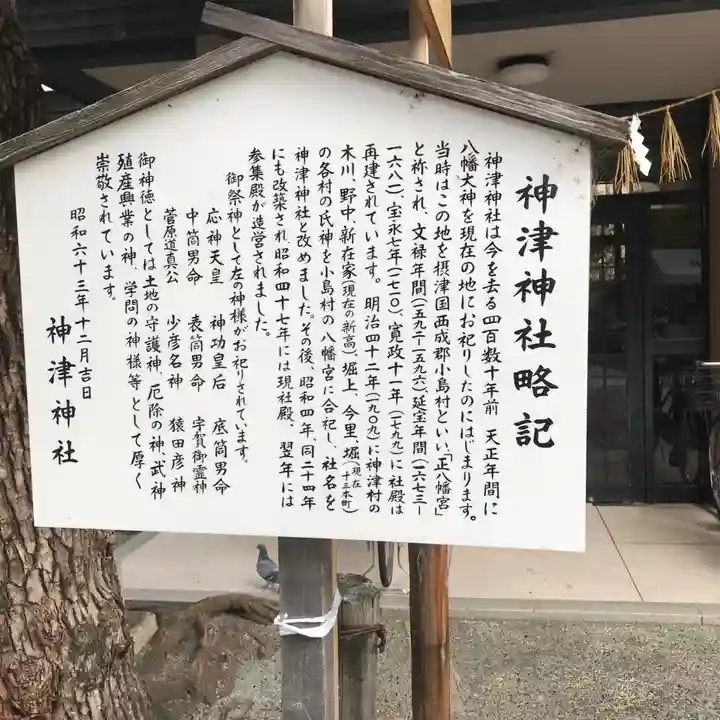 神津神社略記
神津神社は今を去る四百数十年前 天正年間に
八幡大神を現在の地にお祀りしたのにはじまります。
当時はこの地を摂津国西成郡小島村といい、「正八幡宮」
と祢され、文禄年間(一五九二-一五九六)延宝年間(一六七三-
一六八一)、宝永七年(一七一〇)、寛政十一年(一七九九)に社殿は
再建されています。 明治四十二年(一九〇九)に神津村の
木川、野中、新在家(現在の新高)、堀上、今里、堀(現在十三本町)
の各村の氏神を小島村の八幡宮に合祀し、社名を
神津神社と改めました。その後、昭和四年、同二十四年
にも改築され、昭和四十七年には現社殿、 翌年には
参集殿が造営されました。
御祭神として左の神様がお祀りされています。
応神天皇 神功皇后 底筒男命
中筒男命 表筒男命 宇賀御霊神
菅原道真公 少彦名神 猿田彦神
御神徳としては土地の守護神、厄除の神、武神
殖産興業の神、学問の神様等として厚く
崇敬されています。
昭和六十三年十二月吉日
神津神社